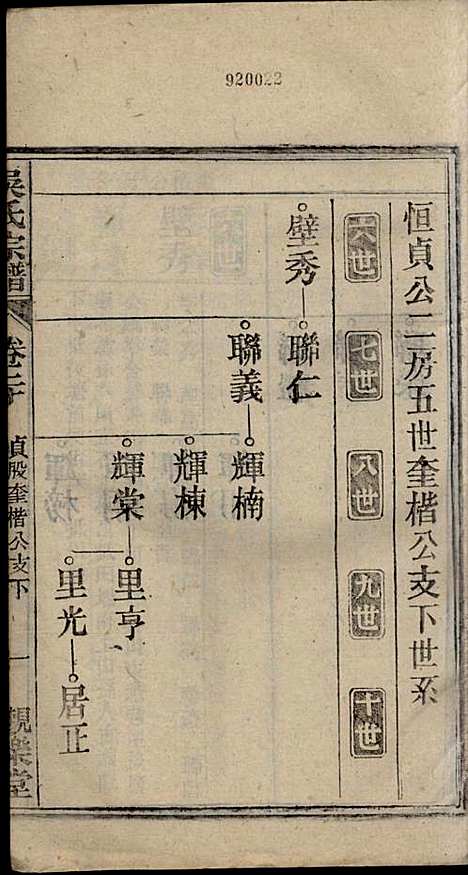 920022
恒貞公二房五世奎楷公支下世系
六世
七世
八世
九世
十世
壁秀
聯仁
聯義
輝楠
輝棟
輝棠
里亨
里光
居正
吳氏宗譜
卷之下
貞股奎楷公支下
一
親樂堂